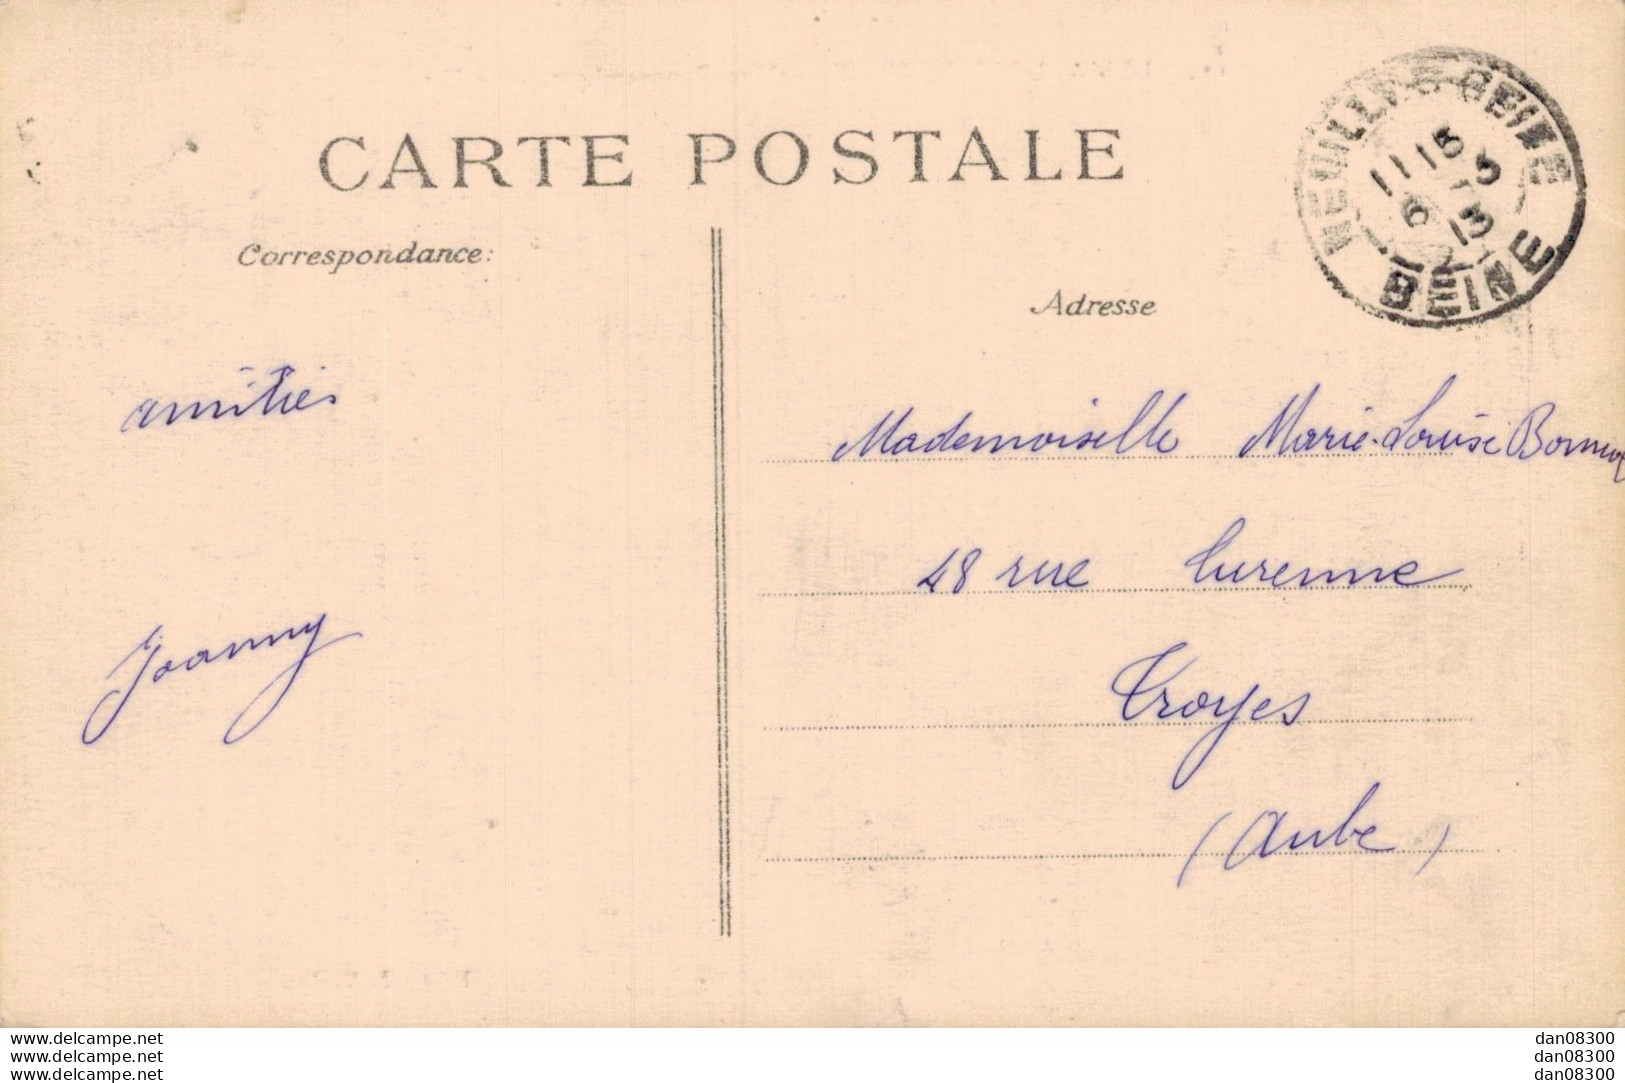 CARTE POSTALE
Correspondance:
Adresse
amitiés
Joanny
Mademoiselle Marie-Louise
48 rue Turenne
Troyes
(Aube)
SEINE
11 15
13
www.delcampe.net
www.delcampe.net
www.delcampe.net
dan08300
dan08300
dan08300